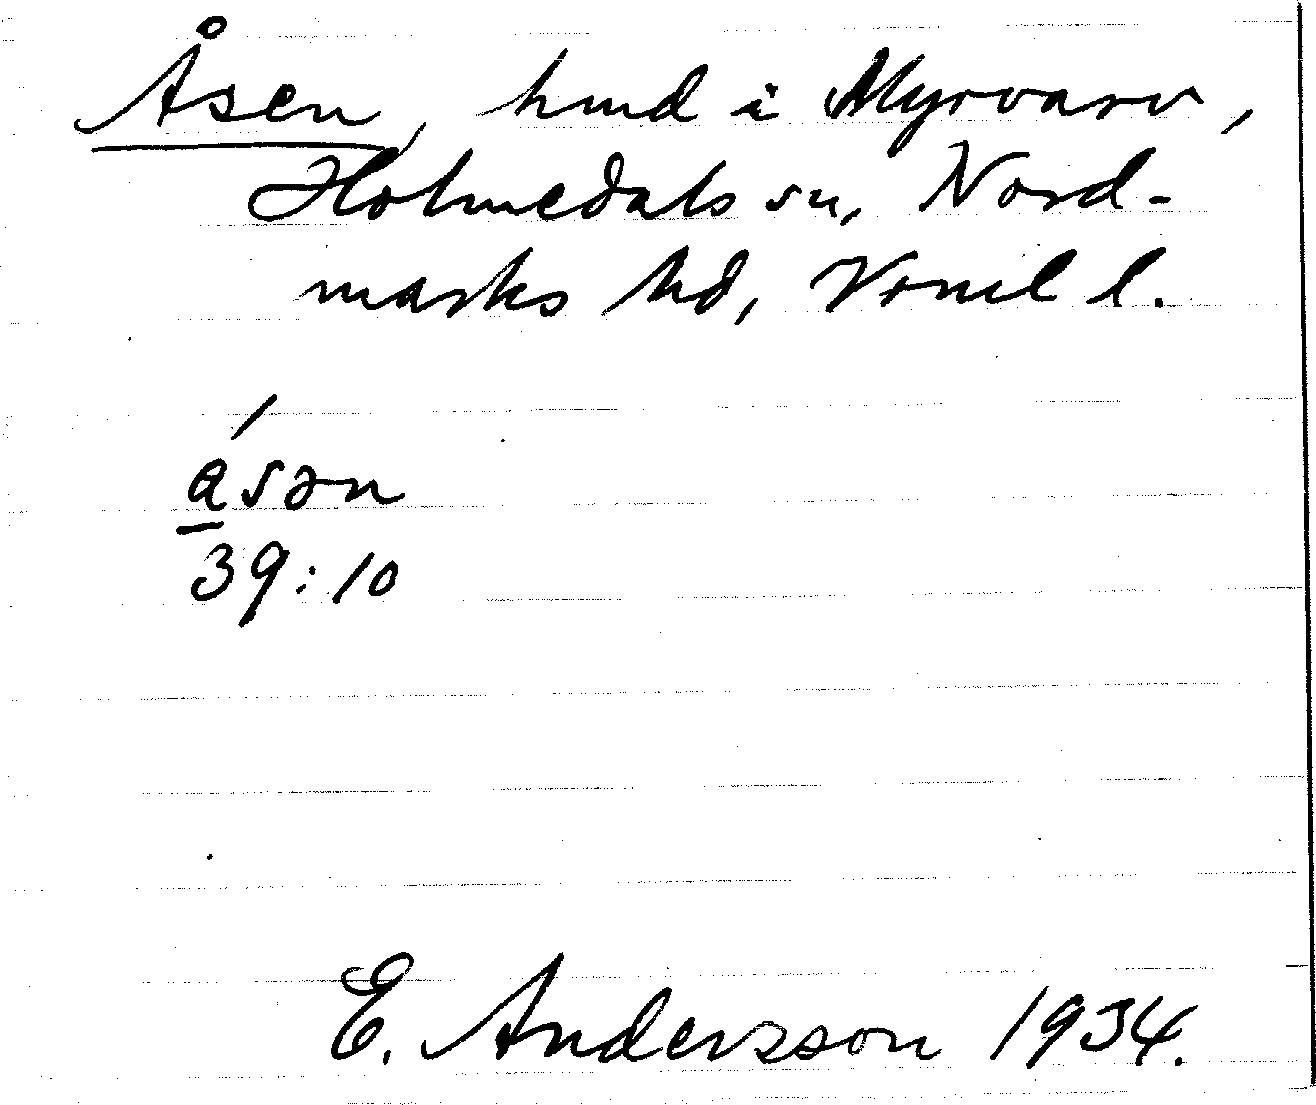 Åsen, hmd i Myrvarv,
Holmedals sn, Nord-
marks hd, Vrml l.
åsən
39:10
E. Andersson 1934.